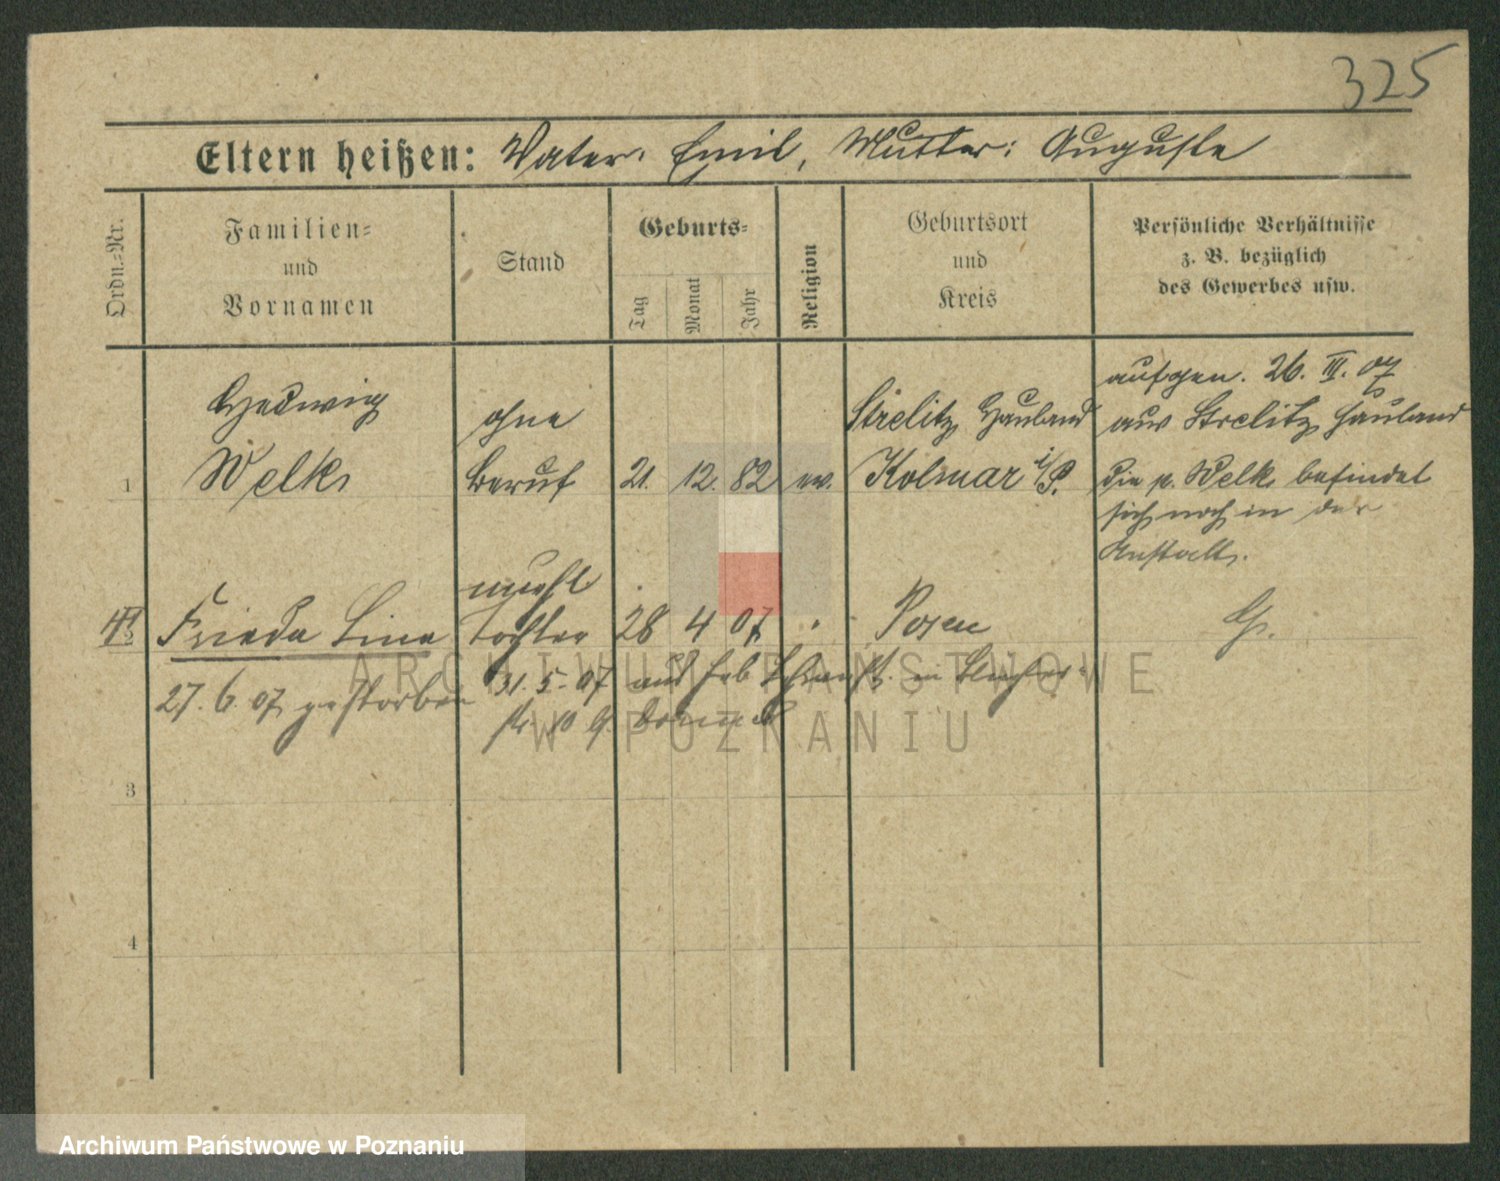 325
Eltern heißen: Vater: Emil, Mutter: Auguste
Ordn.-Nr.
Familien-
und
Vornamen
Stand
Geburts-
Tag
Monat
Jahr
Religion
Geburtsort
und
Kreis
Persönliche Verhältnisse
z. B. bezüglich
des Gewerbes usw.
1
Hedwig
Welk
ohne
Beruf
21. 12. 82
ev.
Strelitz Hauland
Kolmar i/P.
aufgen. 26. III. 07
aus Strelitz Hauland
Die p. Welk befindet
sich noch in der
Anstalt.
Frieda Lina
unehl
Tochter
28 4 07
Posen
27. 6. 07 gestorben
31. 5. 07
3
4
ARCHIWUM PAŃSTWOWE
W POZNANIU
Archiwum Państwowe w Poznaniu